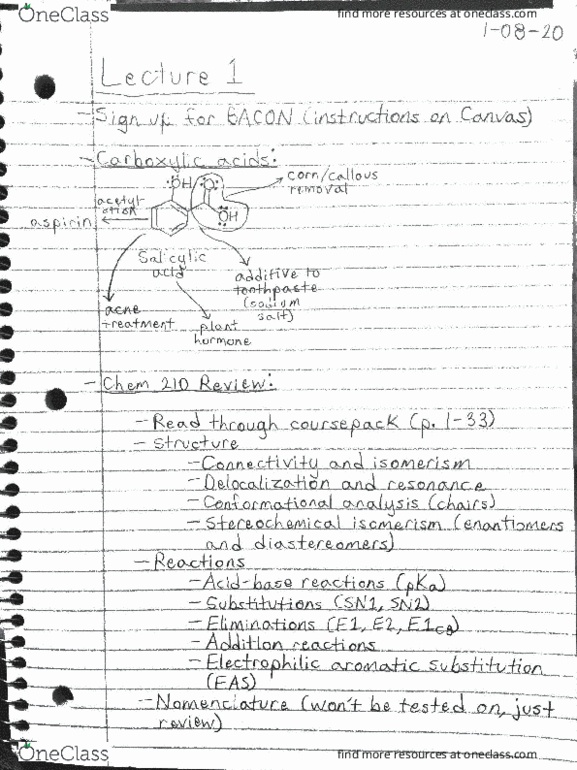 OneClass
find more resources at oneclass.com
1-08-20
Lecture 1
- Sign up for BACON (instructions on Canvas)
- Carboxylic acids:
:ÖH :O:
corn/callous
removal
acetyl-
ation
aspirin
ÖH
Salicylic
acid
additive to
toothpaste
(sodium
salt)
acne
treatment
plant
hormone
- Chem 210 Review:
- Read through coursepack (p. 1-33)
- Structure
- Connectivity and isomerism
- Delocalization and resonance
- Conformational analysis (chairs)
- Stereochemical isomerism (enantiomers
and diastereomers)
- Reactions
- Acid-base reactions (pKa)
- Substitutions (SN1, SN2)
- Eliminations (E1, E2, E1cB)
- Addition reactions
- Electrophilic aromatic substitution
(EAS)
- Nomenclature (won't be tested on, just
review)
OneClass
find more resources at oneclass.com